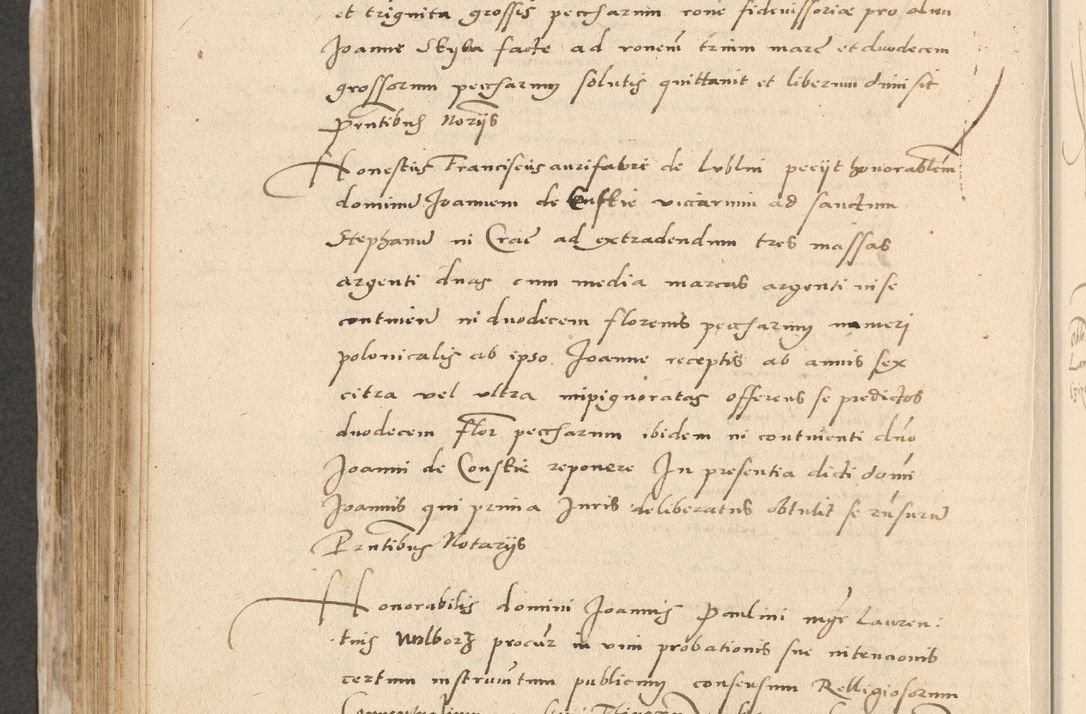 et trignita grossis peccharum rone fideiussoriæ pro dno
Joanne Skyba facte ad ronem trium marc et duodecem
grossorum peccharum solutis quittauit et liberum dimisit
Prntibus Norijs
Honestus Franciscus aurifaber de Lublin pecijt honorablem
dominu Joannem de Conskie viccarium ad sanctum
Stephanu in Crac ad extradendum tres massas
argenti duas cum media marcas argenti in se
continen in duodecem florenis peccharum numeri
polonicalis ab ipso Joanne receptis ab annis sex
citra vel ultra inpignoratas offerens se predictos
duodecem flor peccharum ibidem in continenti dno
Joanni de Conskie reponere In presentia dicti domi
Joannis qui prima Juris deliberatus obtulit se rnsuru
Prntibus Notarijs
Honorabilis domini Joannis Paulini mgr Lauren:
tius Wolborz procur in vim probationis sue intencionis
certum instrumtum publicum consensum Relligiosorum